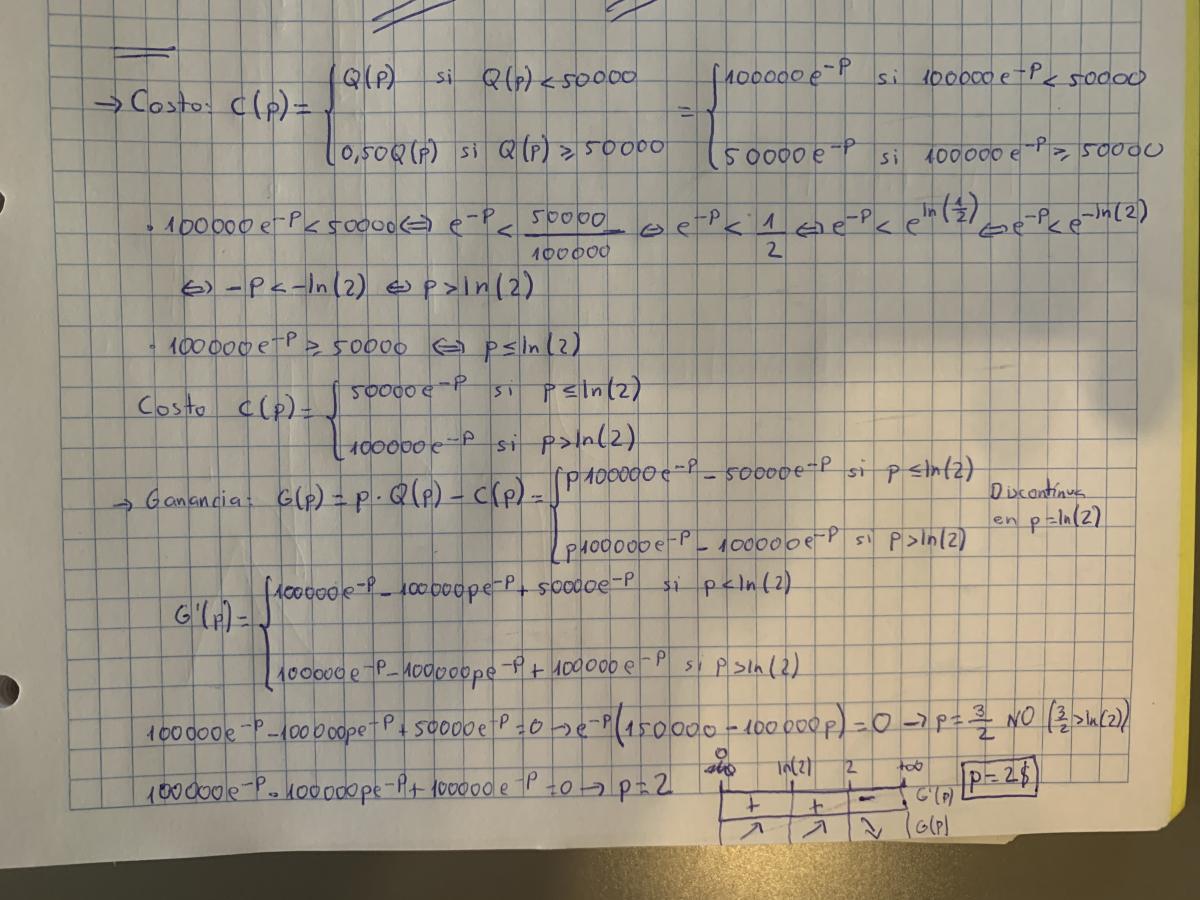 → Costo: C(p) = { Q(p) si Q(p) < 50000 = { 100000e^-p si 100000e^-p < 50000
0,50Q(p) si Q(p) ≥ 50000 50000e^-p si 100000e^-p ≥ 50000
· 100000e^-p < 50000 ⇔ e^-p < 50000/100000 ⇔ e^-p < 1/2 ⇔ e^-p < e^ln(1/2) ⇔ e^-p < e^-ln(2)
⇔ -p < -ln(2) ⇔ p > ln(2)
· 100000e^-p ≥ 50000 ⇔ p ≤ ln(2)
Costo C(p) = { 50000e^-p si p ≤ ln(2)
100000e^-p si p > ln(2)
→ Ganancia: G(p) = p · Q(p) - C(p) = { p100000e^-p - 50000e^-p si p ≤ ln(2)
p100000e^-p - 100000e^-p si p > ln(2)
Discontinua
en p = ln(2)
G'(p) = { 100000e^-p - 100000pe^-p + 50000e^-p si p < ln(2)
100000e^-p - 100000pe^-p + 100000e^-p si p > ln(2)
100000e^-p - 100000pe^-p + 50000e^-p = 0 → e^-p(150000 - 100000p) = 0 → p = 3/2 NO (3/2 > ln(2))
100000e^-p - 100000pe^-p + 100000e^-p = 0 → p = 2
0 ln(2) 2 +∞
+ + - G'(p)
↗ ↗ ↘ G(p)
p = 2$